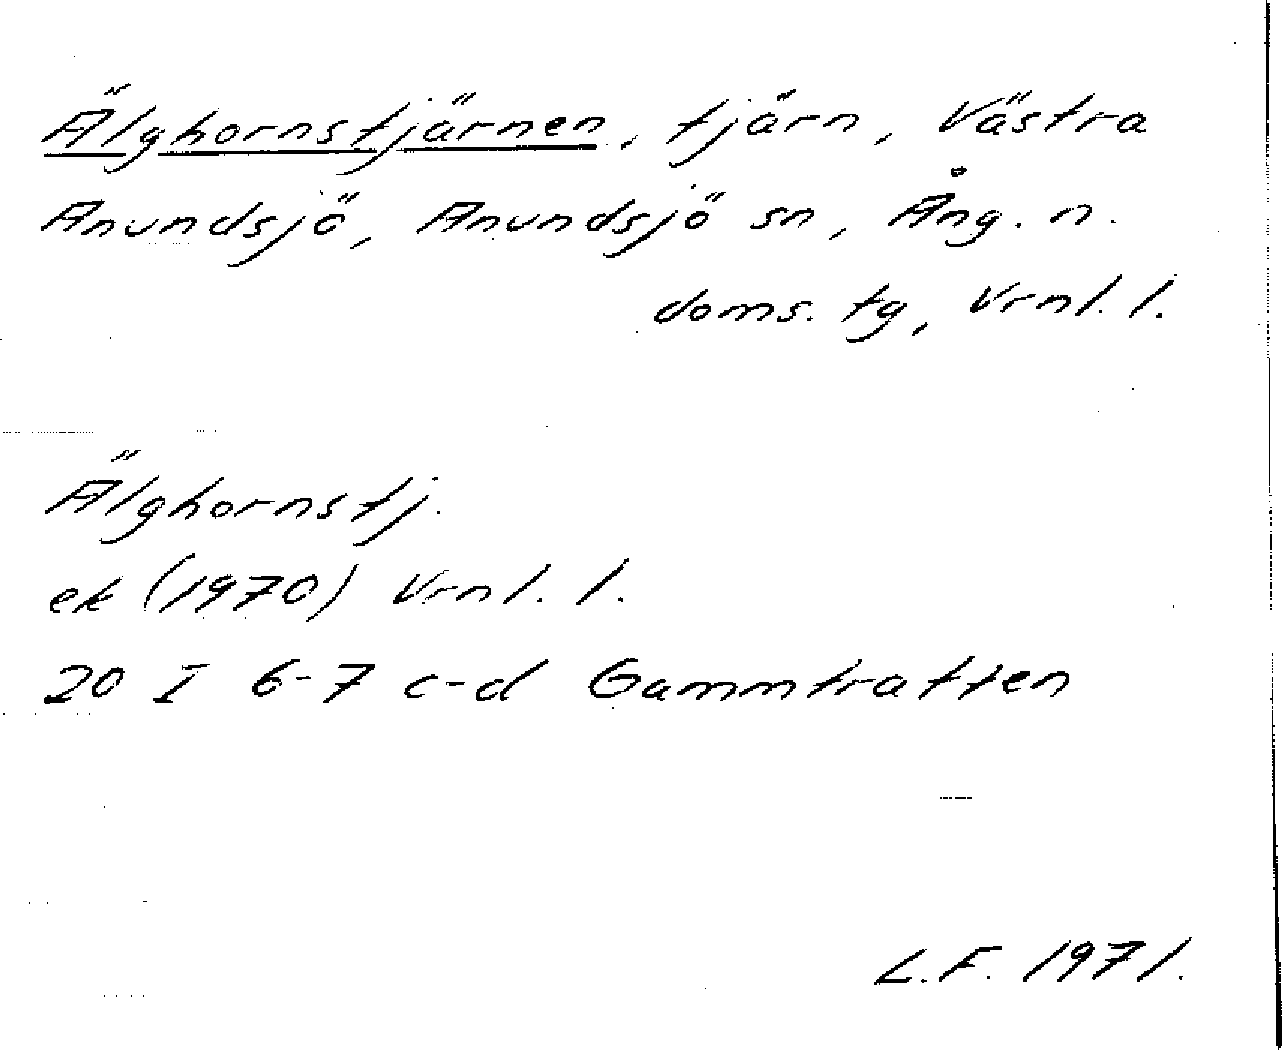 Älghornstjärnen, tjärn, Västra
Anundsjö, Anundsjö sn, Ång. n.
doms. tg, Vrnl. l.
Älghornstj.
ek (1970) Vrnl. l.
20 I 6-7 c-d Gammtratten
L.F. 1971.